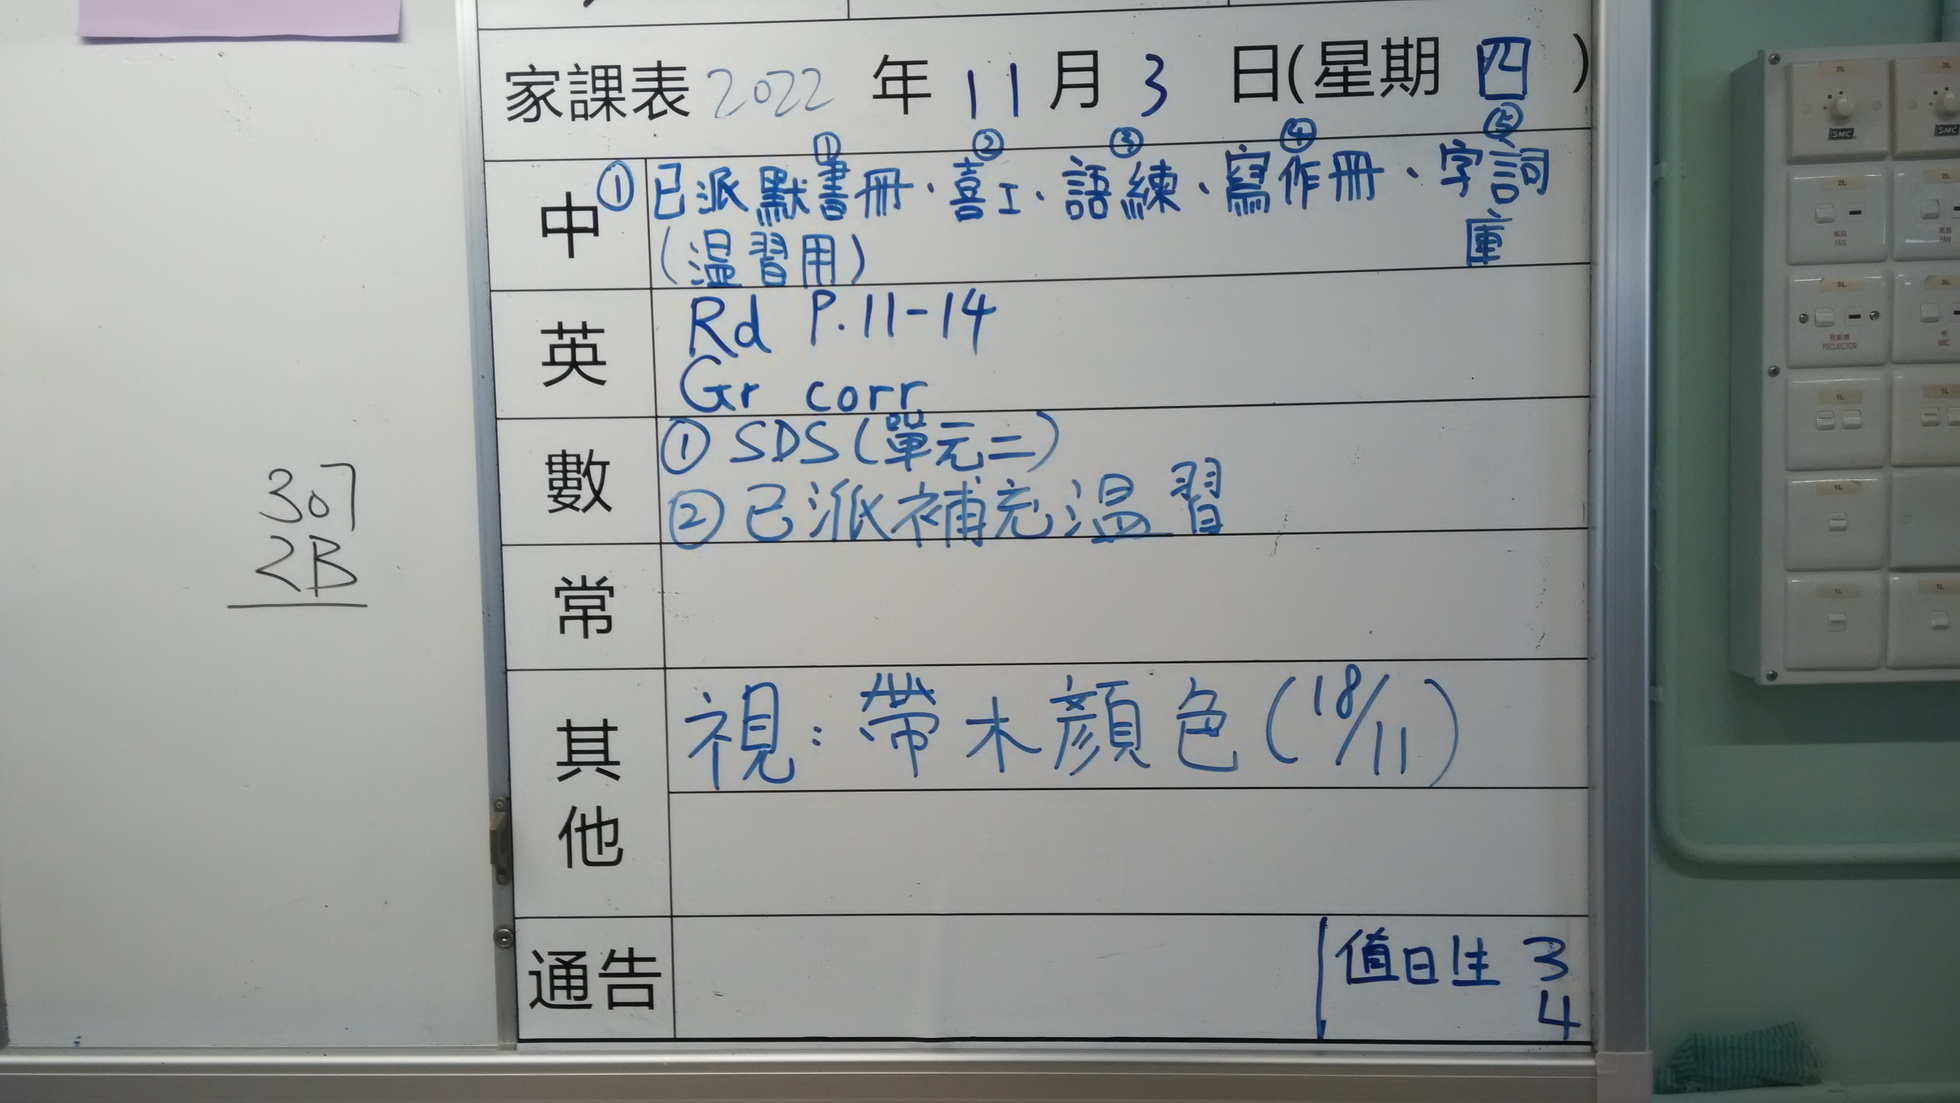 家課表 2022 年 11 月 3 日(星期 四 )
① ② ③ ④ ⑤
中 ① 已派默書冊、喜工、語練、寫作冊、字詞
庫
(温習用)
英 Rd P.11-14
Gr corr
數 ① SDS(單元二)
② 已派補充温習
常
其他 視:帶木顏色(18/11)
通告 值日生 3
4
307
2B
2L
2L
SMC
SMC
2L
2L
風扇
FAN
風扇
FAN
3L
投影機
PROJECTOR
MIC
1L
1L
1L
1L
1L